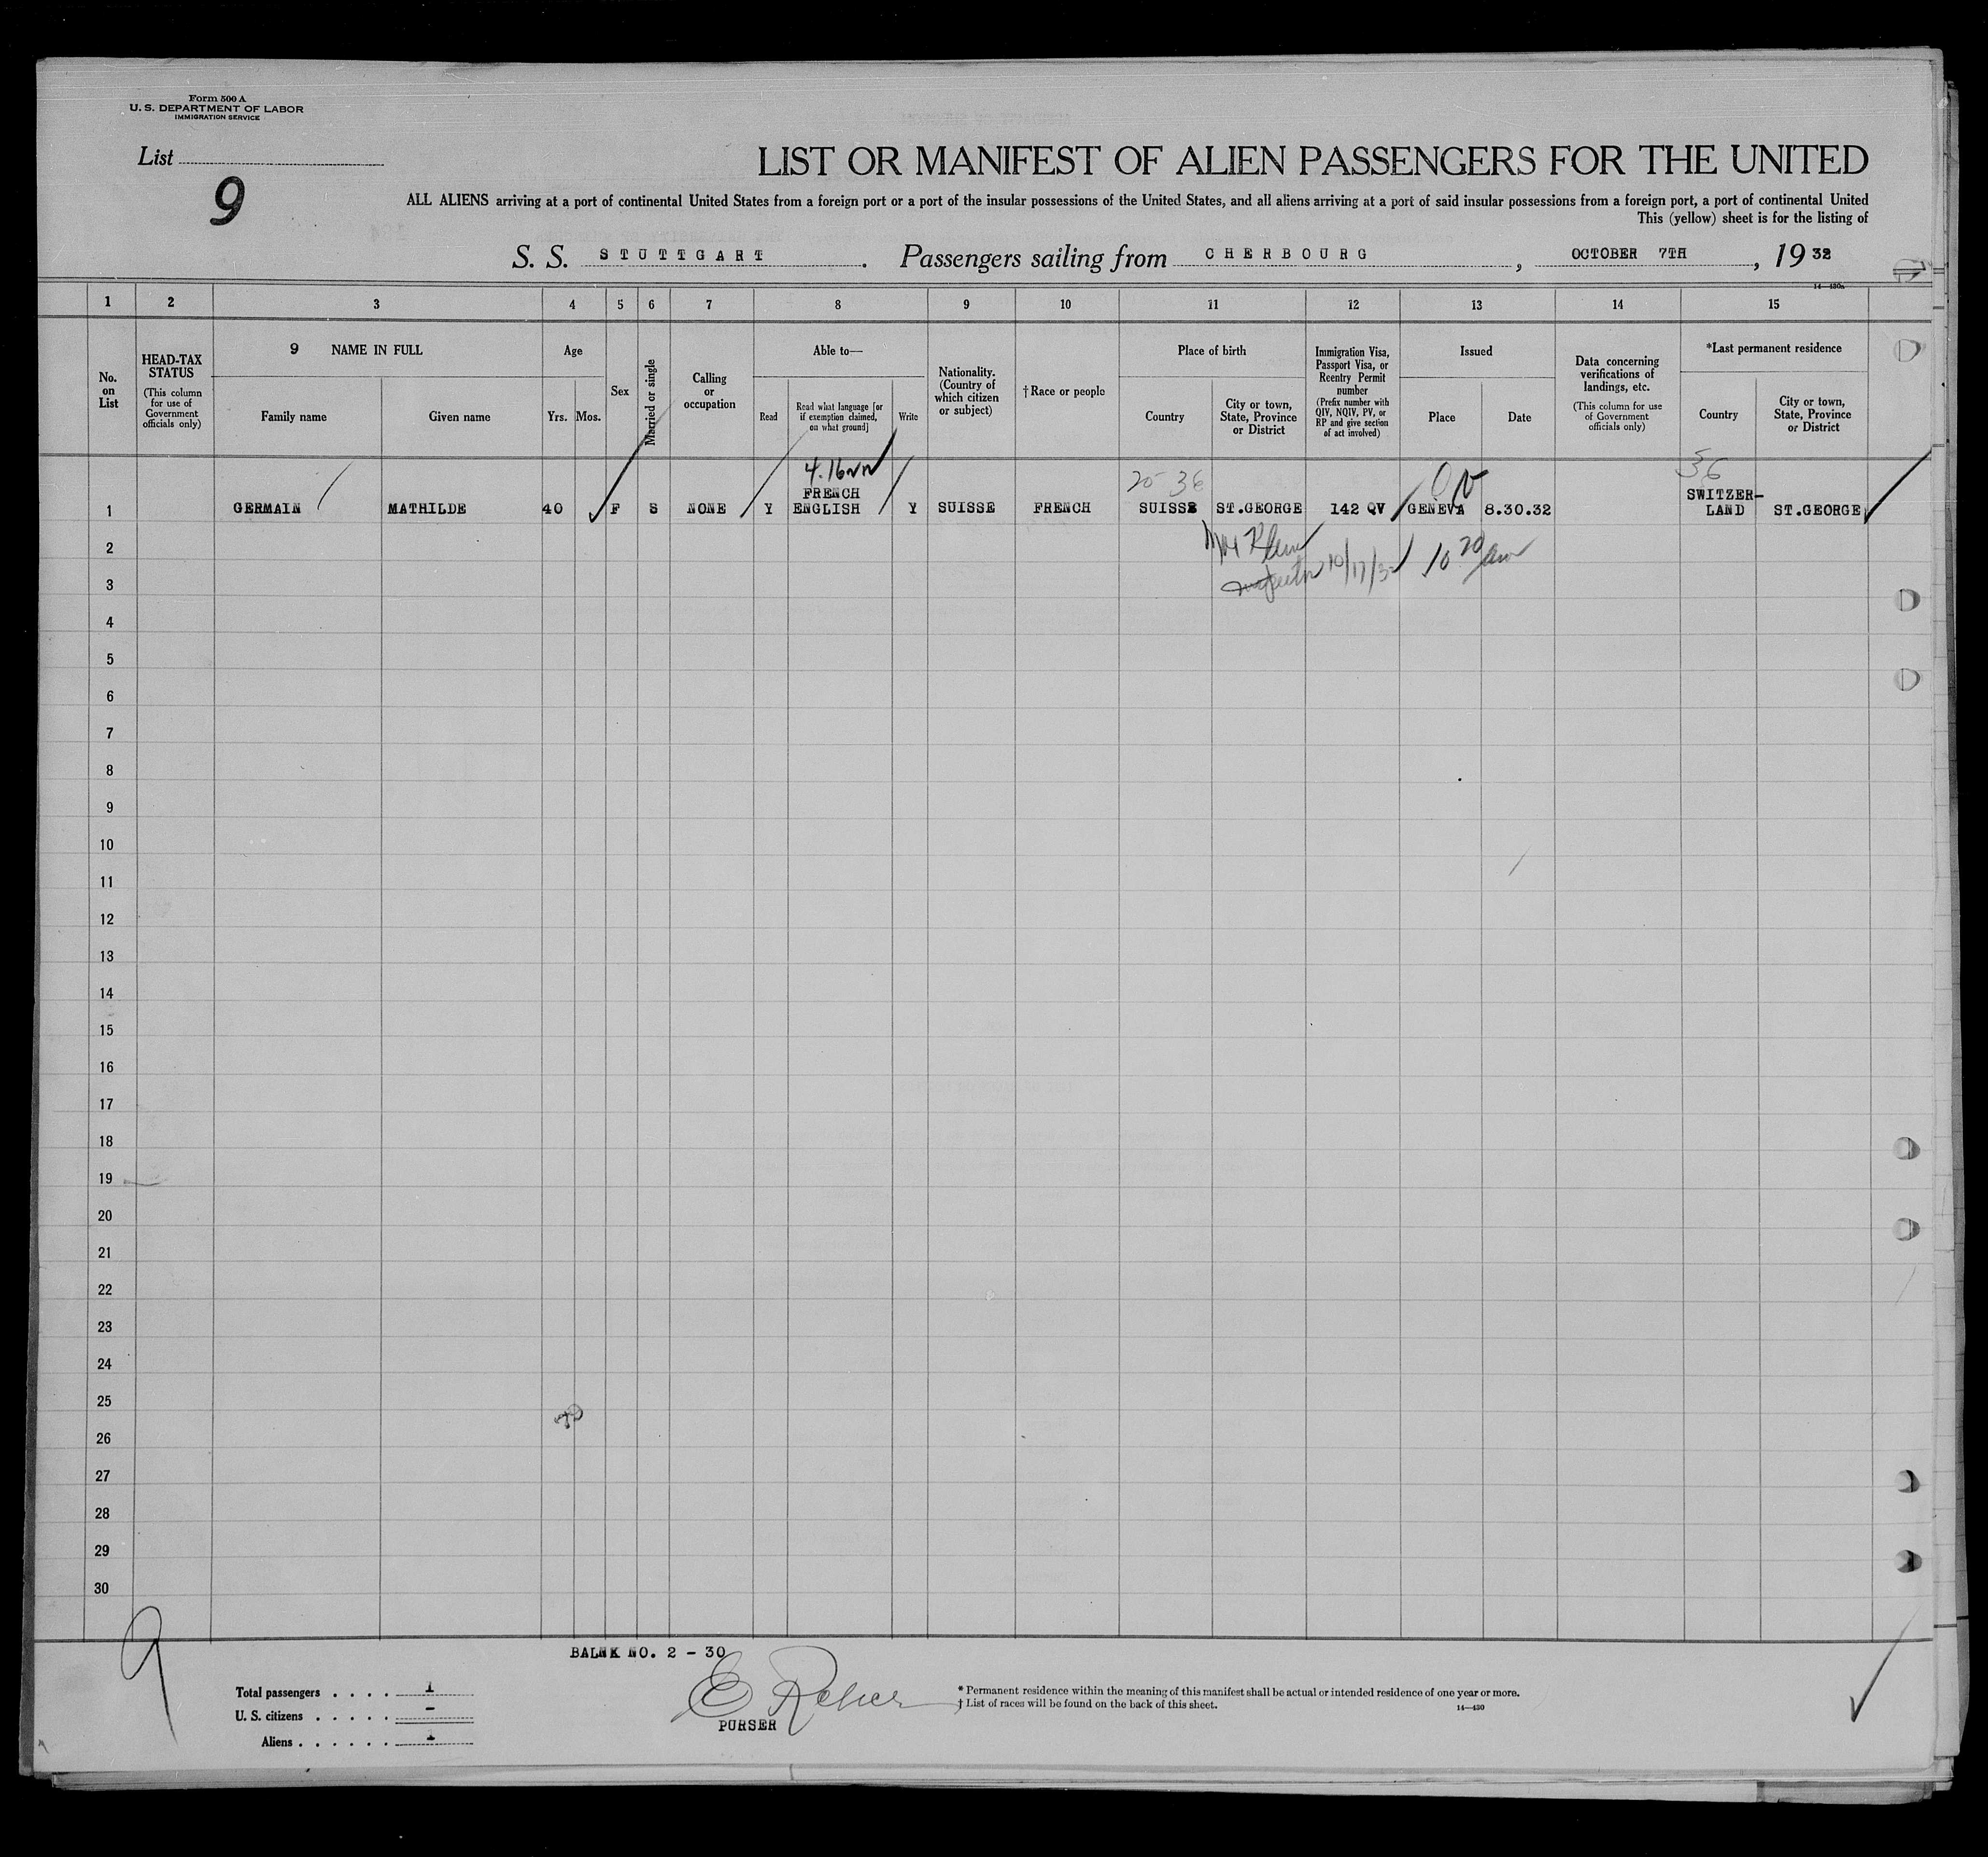 Form 500 A
U. S. DEPARTMENT OF LABOR
IMMIGRATION SERVICE
List
9
LIST OR MANIFEST OF ALIEN PASSENGERS FOR THE UNITED
ALL ALIENS arriving at a port of continental United States from a foreign port or a port of the insular possessions of the United States, and all aliens arriving at a port of said insular possessions from a foreign port, a port of continental United
This (yellow) sheet is for the listing of
S. S. STUTTGART. Passengers sailing from CHERBOURG, OCTOBER 7TH, 1932
14—430a
1 2 3 4 5 6 7 8 9 10 11 12 13 14 15
No. on List
HEAD-TAX STATUS
(This column for use of Government officials only)
9 NAME IN FULL
Family name
Given name
Age
Yrs.
Mos.
Sex
Married or single
Calling or occupation
Able to—
Read
Read what language [or if exemption claimed, on what ground]
Write
Nationality. (Country of which citizen or subject)
† Race or people
Place of birth
Country
City or town, State, Province or District
Immigration Visa, Passport Visa, or Reentry Permit number
(Prefix number with QIV, NQIV, PV, or RP and give section of act involved)
Issued
Place
Date
Data concerning verifications of landings, etc.
(This column for use of Government officials only)
*Last permanent residence
Country
City or town, State, Province or District
25 36
36
1 GERMAIN MATHILDE 40 F S NONE Y FRENCH ENGLISH Y SUISSE FRENCH SUISSE ST.GEORGE 142 QV GENEVA 8.30.32 SWITZER-LAND ST.GEORGE
2
Inspector 10/17/32 10 20 am
3
4
5
6
7
8
9
10
11
12
13
14
15
16
17
18
19
20
21
22
23
24
25
26
27
28
29
30
9
BALNK NO. 2 - 30
Total passengers . . . . 1
U. S. citizens . . . . . -
Aliens . . . . . . 1
PURSER
* Permanent residence within the meaning of this manifest shall be actual or intended residence of one year or more.
† List of races will be found on the back of this sheet.
14—430